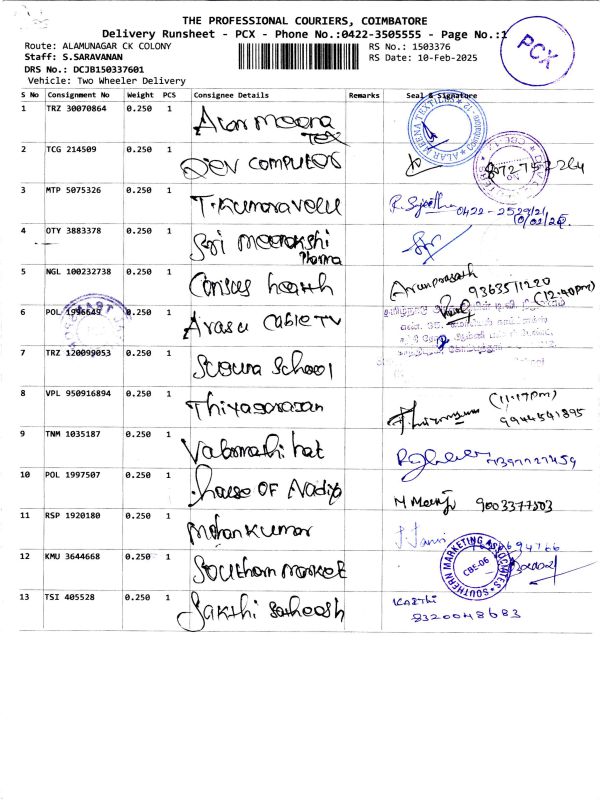 THE PROFESSIONAL COURIERS, COIMBATORE
Delivery Runsheet - PCX - Phone No.:0422-3505555 - Page No.:1
PCX
Route: ALAMUNAGAR CK COLONY
RS No.: 1503376
Staff: S.SARAVANAN
RS Date: 10-Feb-2025
DRS No.: DCJB150337601
Vehicle: Two Wheeler Delivery
S No Consignment No Weight PCS Consignee Details Remarks Seal & Signature
1 TRZ 30070864 0.250 1 Alar meena Tex
ALAR MEENA TEXTILES
2 TCG 214509 0.250 1 DEV COMPUTER
3 MTP 5075326 0.250 1 T.Kumaravelu
0422-2529121
10/02/25
4 OTY 3883378 0.250 1 Sri meenakshi Pharma
5 NGL 100232738 0.250 1 health
Arunprasath
9363511220
(12:40pm)
6 POL 1996649 0.250 1 Arasu Cable TV
7 TRZ 120099053 0.250 1 School
8 VPL 950916894 0.250 1 Thiyagarajan
(11:17pm)
9944541895
9 TNM 1035187 0.250 1
10 POL 1997507 0.250 1 house OF
9003377503
11 RSP 1920180 0.250 1 Mohan Kumar
12 KMU 3644668 0.250 1 Southern market
SOUTHERN MARKETING ASSOCIATES
CBE-06
13 TSI 405528 0.250 1 Sakthi Satheesh
KARTHI
8320048683